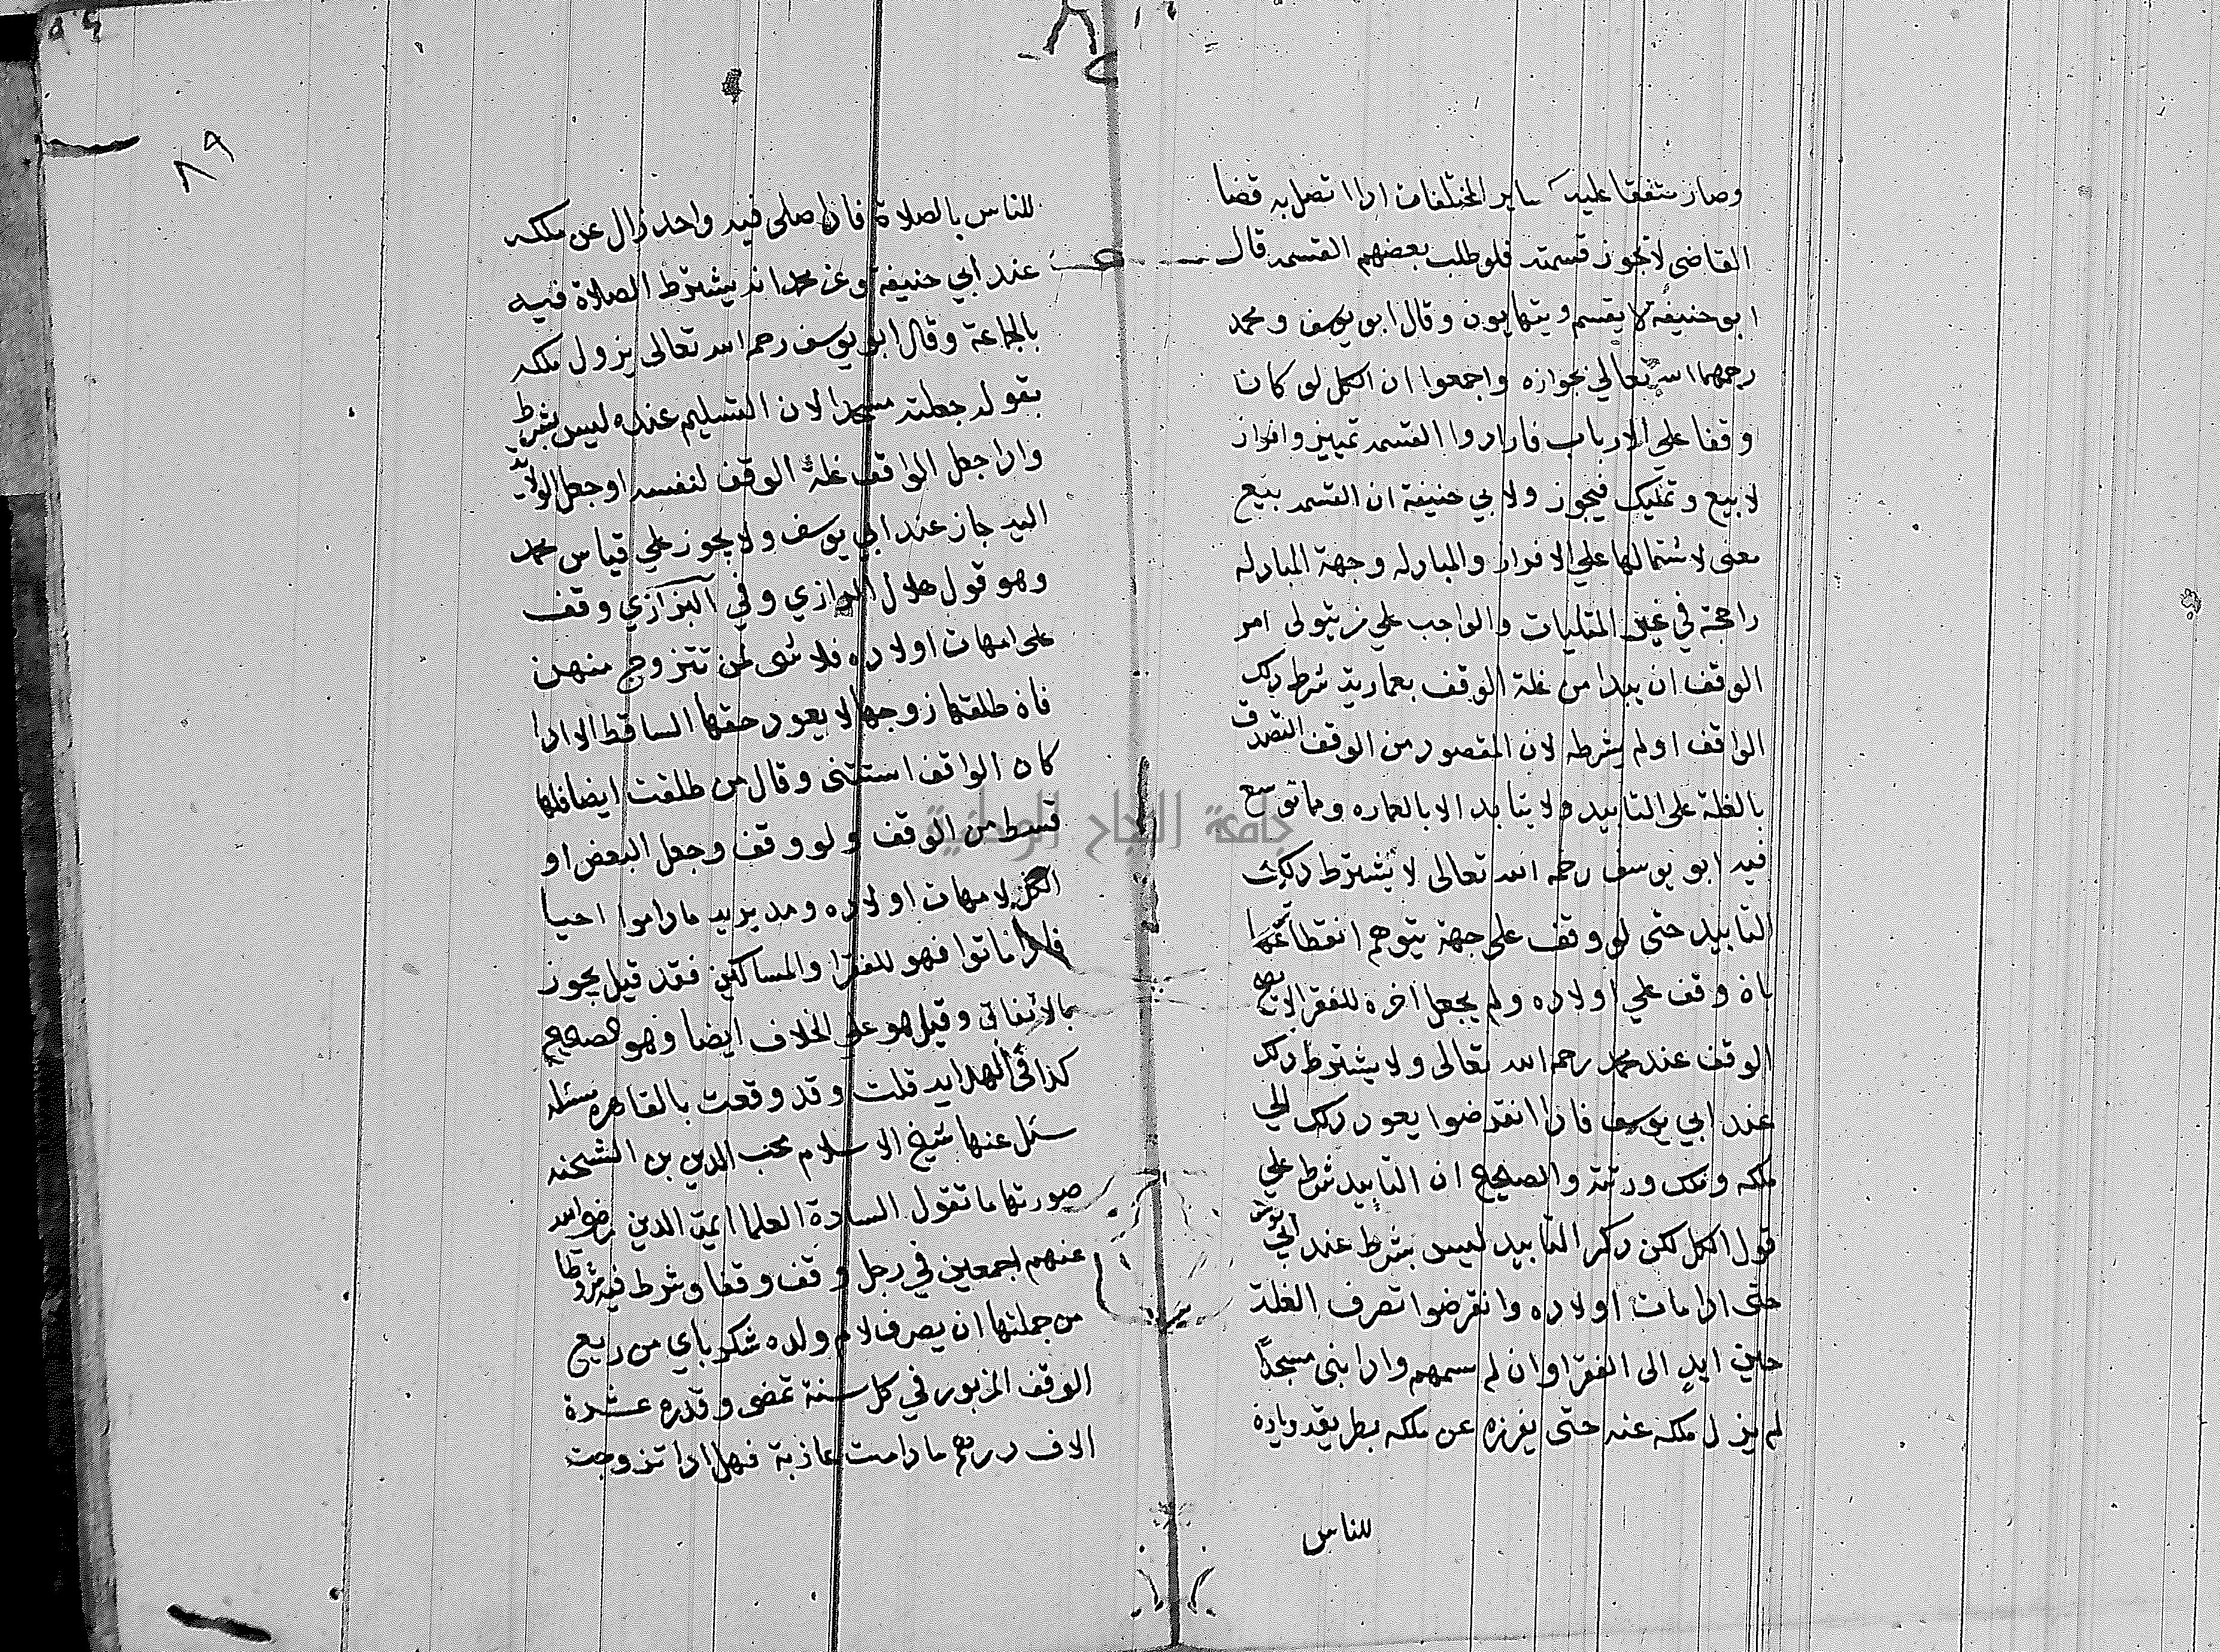 وصار متفقا عليه كساير المختلفات اذا اتصل به قضا
القاضي لا تجوز قسمته فلو طلب بعضهم القسمه قال
ابو حنيفة لا يقسم ويتهايون وقال ابو يوسف ومحمد
رحمهما الله تعالي بجوازه واجمعوا ان الكل لو كان
وقفا علي الارباب فارادوا القسمه تمييز وافراز
لا بيع وتمليك فيجوز ولابي حنيفة ان القسمه بيع
معنى لاشتمالها علي الافراز والمبادله وجهة المبادله
راجحة في غير المثليات والواجب علي من يتولى امر
الوقف ان يبدا من غلة الوقف بعمارته شرط ذلك
الواقف اولم يشرطه لان المقصود من الوقف التصدق
بالغلة على التابيد ولا يتابد الا بالعماره ومما توسع
فيه ابو يوسف رحمه الله تعالى لا يشترط ذلك
التابيد حتى لو وقف على جهة يتوهم انقطاعها
بان وقف علي اولاده ولم يجعل اخره للفقرا لا يصح
الوقف عند محمد رحمه الله تعالى ولا يشترط ذلك
عند ابي يوسف فاذا انقرضوا يعود ذلك الي
ملكه وملك ورثته والصحيح ان التابيد شرط علي
قول الكل لكن ذكر التابيد ليس بشرط عند ابي يوسف
حتى اذا مات اولاده وانقرضوا تصرف الغلة
الى الفقرا وان لم يسمهم واذا بنى مسجدا
لم يزل ملكه عنه حتى يفرزه عن ملكه بطريقه وياذن
للناس
٨٩
للناس بالصلاة فاذا صلى فيه واحد زال عن ملكه
عند ابي حنيفة وعن محمد انه يشترط الصلاة فيه
بالجماعة وقال ابو يوسف رحمه الله تعالى يزول ملكه
بقوله جعلته مسجدا لان التسليم عنده ليس بشرط
واذا جعل الواقف غلة الوقف لنفسه او جعل الولاية
اليه جاز عند ابي يوسف ولا يجوز علي قياس محمد
وهو قول هلال الرازي وفي البزازي وقف
على امهات اولاده فلا شى لمن تتزوج منهن
فان طلقها زوجها لا يعود حقها الساقط الا اذا
كان الواقف استثنى وقال من طلقت ايضا فلها
قسط من الوقف ولو وقف وجعل البعض او
الكل لامهات اولاده ومدبريه ماداموا احيا
فاذا ماتوا فهو للفقرا والمساكين فقد قيل يجوز
بالاتفاق وقيل هو علي الخلاف ايضا وهو الصحيح
كذا في الهدايه قلت وقد وقعت بالقاهره مسئله
سئل عنها شيخ الاسلام محب الدين بن الشحنه
صورتها ما تقول السادة العلما ايمة الدين رضي الله
عنهم اجمعين في رجل وقف وقفا وشرط فيه شروطا
من جملتها ان يصرف لام ولده شكرباي من ريع
الوقف المزبور في كل سنة تمضى وقدره عشرة
الاف درهم مادامت عازبة فهل اذا تزوجت
جامعة النجاح الوطنية